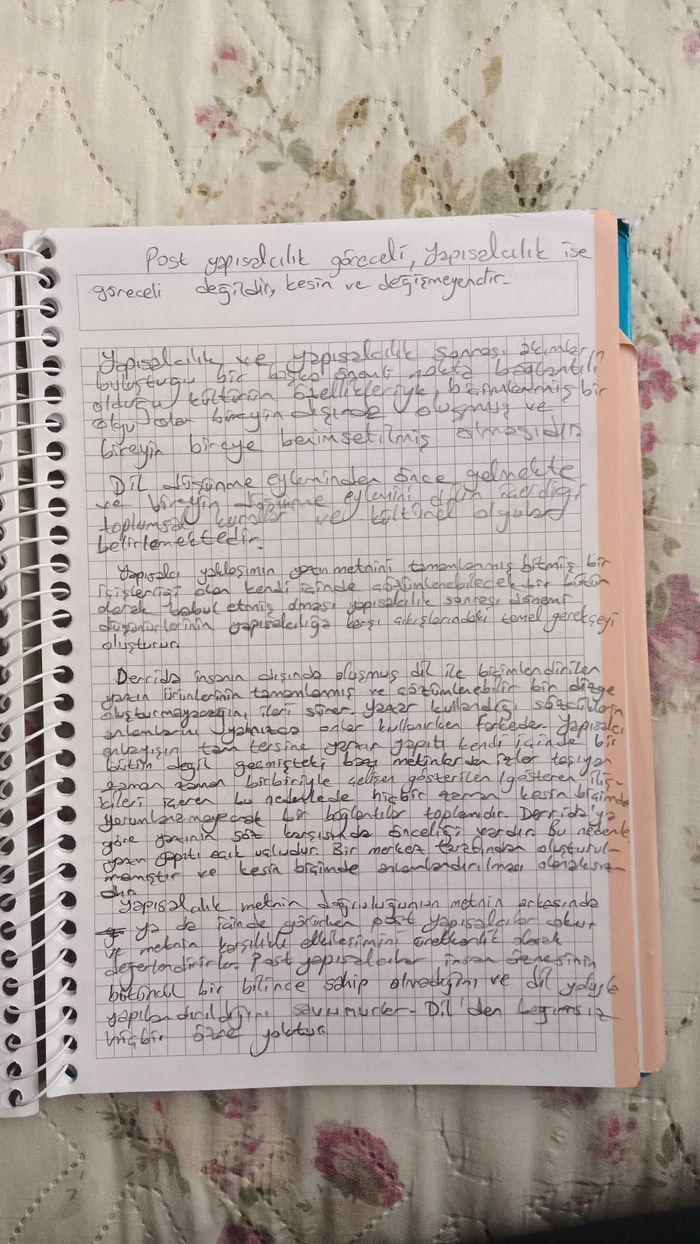 Post yapısalcılık göreceli, yapısalcılık ise
göreceli değildir, kesin ve değişmeyendir.
Yapısalcılık ve yapısalcılık sonrası akımlar,
buluştuğu bir başka önemli nokta bağlantılı
olduğu kültürün özellikleriyle, biçimlenmiş bir
olgu olan bireyin dışında oluşmuş ve
bireyin bireye benimsetilmiş olmasıdır.
Dil düşünme eyleminden önce gelmekte
ve bireyin düşünme eylemini dilin içerdiği
toplumsal kurallar ve kültürel olgular
belirlemektedir.
Yapısalcı yaklaşımın yazın metnini tamamlanmış bitmiş bir
içişlerliği olan kendi içinde çözümlenebilecek bir bütün
olarak kabul etmiş olması yapısalcılık sonrası dönemi
düşünürlerinin yapısalcılığa karşı çıkışlarındaki temel gerekçeyi
oluşturur.
Derrida insanın dışında oluşmuş dil ile biçimlendirilen
yazın ürünlerinin tamamlanmış ve çözümlenebilir bir dizge
oluşturmayacağını ileri sürer. Yazar kullandığı sözcüklerin
anlamlarını yalnızca onları kullanırken farkeder. Yapısalcı
anlayışın tam tersine yazın yapıtı kendi içinde bir
bütün değil geçmişteki bazı metinlerden izler taşıyan
zaman zaman birbiriyle çelişen gösterilen/gösteren iliş-
kileri içeren bu nedenlede hiçbir zaman kesin biçimde
yorumlanamayacak bir bağlantılar toplamıdır. Derrida'ya
göre yazının söz karşısında önceliği vardır. Bu nedenle
yazın yapıtı açık uçludur. Bir merkez tarafından oluşturul-
mamıştır ve kesin biçimde anlamlandırılması olanaksız-
dır.
Yapısalcılık metnin doğruluğunun metnin arkasında
ya da içinde görürken post yapısalcılar okur
ve metnin karşılıklı etkileşimini üretkenlik olarak
değerlendirirler. Post yapısalcılar insan öznesinin
bütüncül bir bilince sahip olmadığını ve dil yoluyla
yapılandırıldığını savunurlar. Dil'den bağımsız
hiçbir özne yoktur.